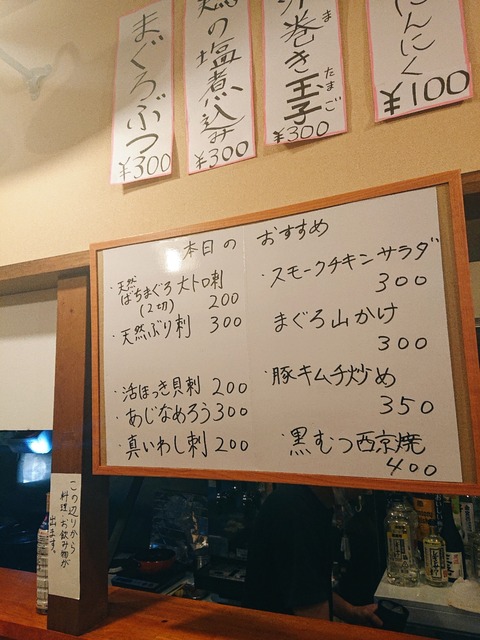 まぐろぶつ
¥300
の塩煮込み
¥300
巻き玉子
たまご
¥300
にんにく
¥100
本日の おすすめ
・天然
ばちまぐろ 大トロ刺
(2切) 200
・天然ぶり刺 300
・活ほっき貝刺 200
・あじなめろう 300
・真いわし刺 200
・スモークチキンサラダ
300
まぐろ山かけ
300
・豚キムチ炒め
350
・黒むつ西京焼
400
この辺りから
料理、お飲み物が
出ます。